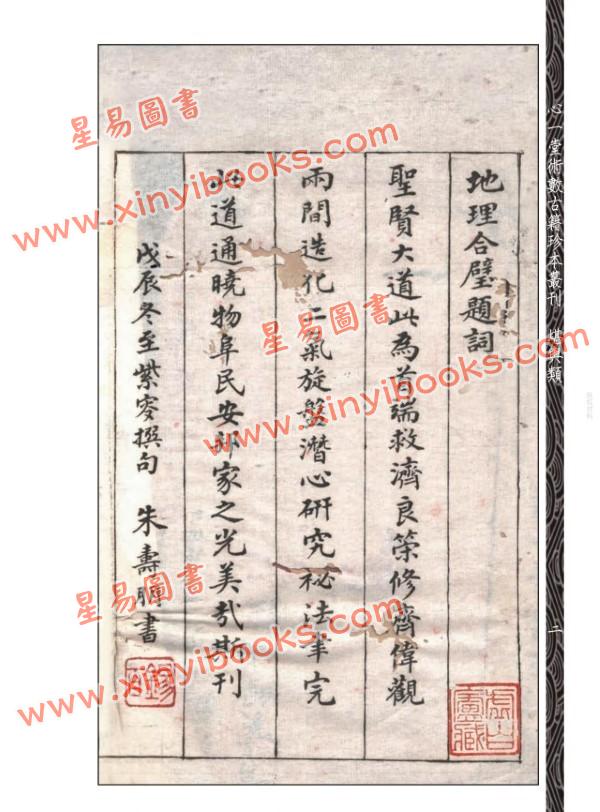 心一堂術數古籍珍本叢刊 堪輿類
二
地理合璧題詞
聖賢大道此為首端救濟良策修齊偉觀
兩間造化二氣旋盤潛心研究祕法畢完
此道通曉物阜民安邦家之光美哉斯刊
戊辰冬至紫零撰句 朱壽朋書
虛白廬藏
星易圖書
www.xinyibooks.com
星易圖書
www.xinyibooks.com
星易圖書
www.xinyibooks.com